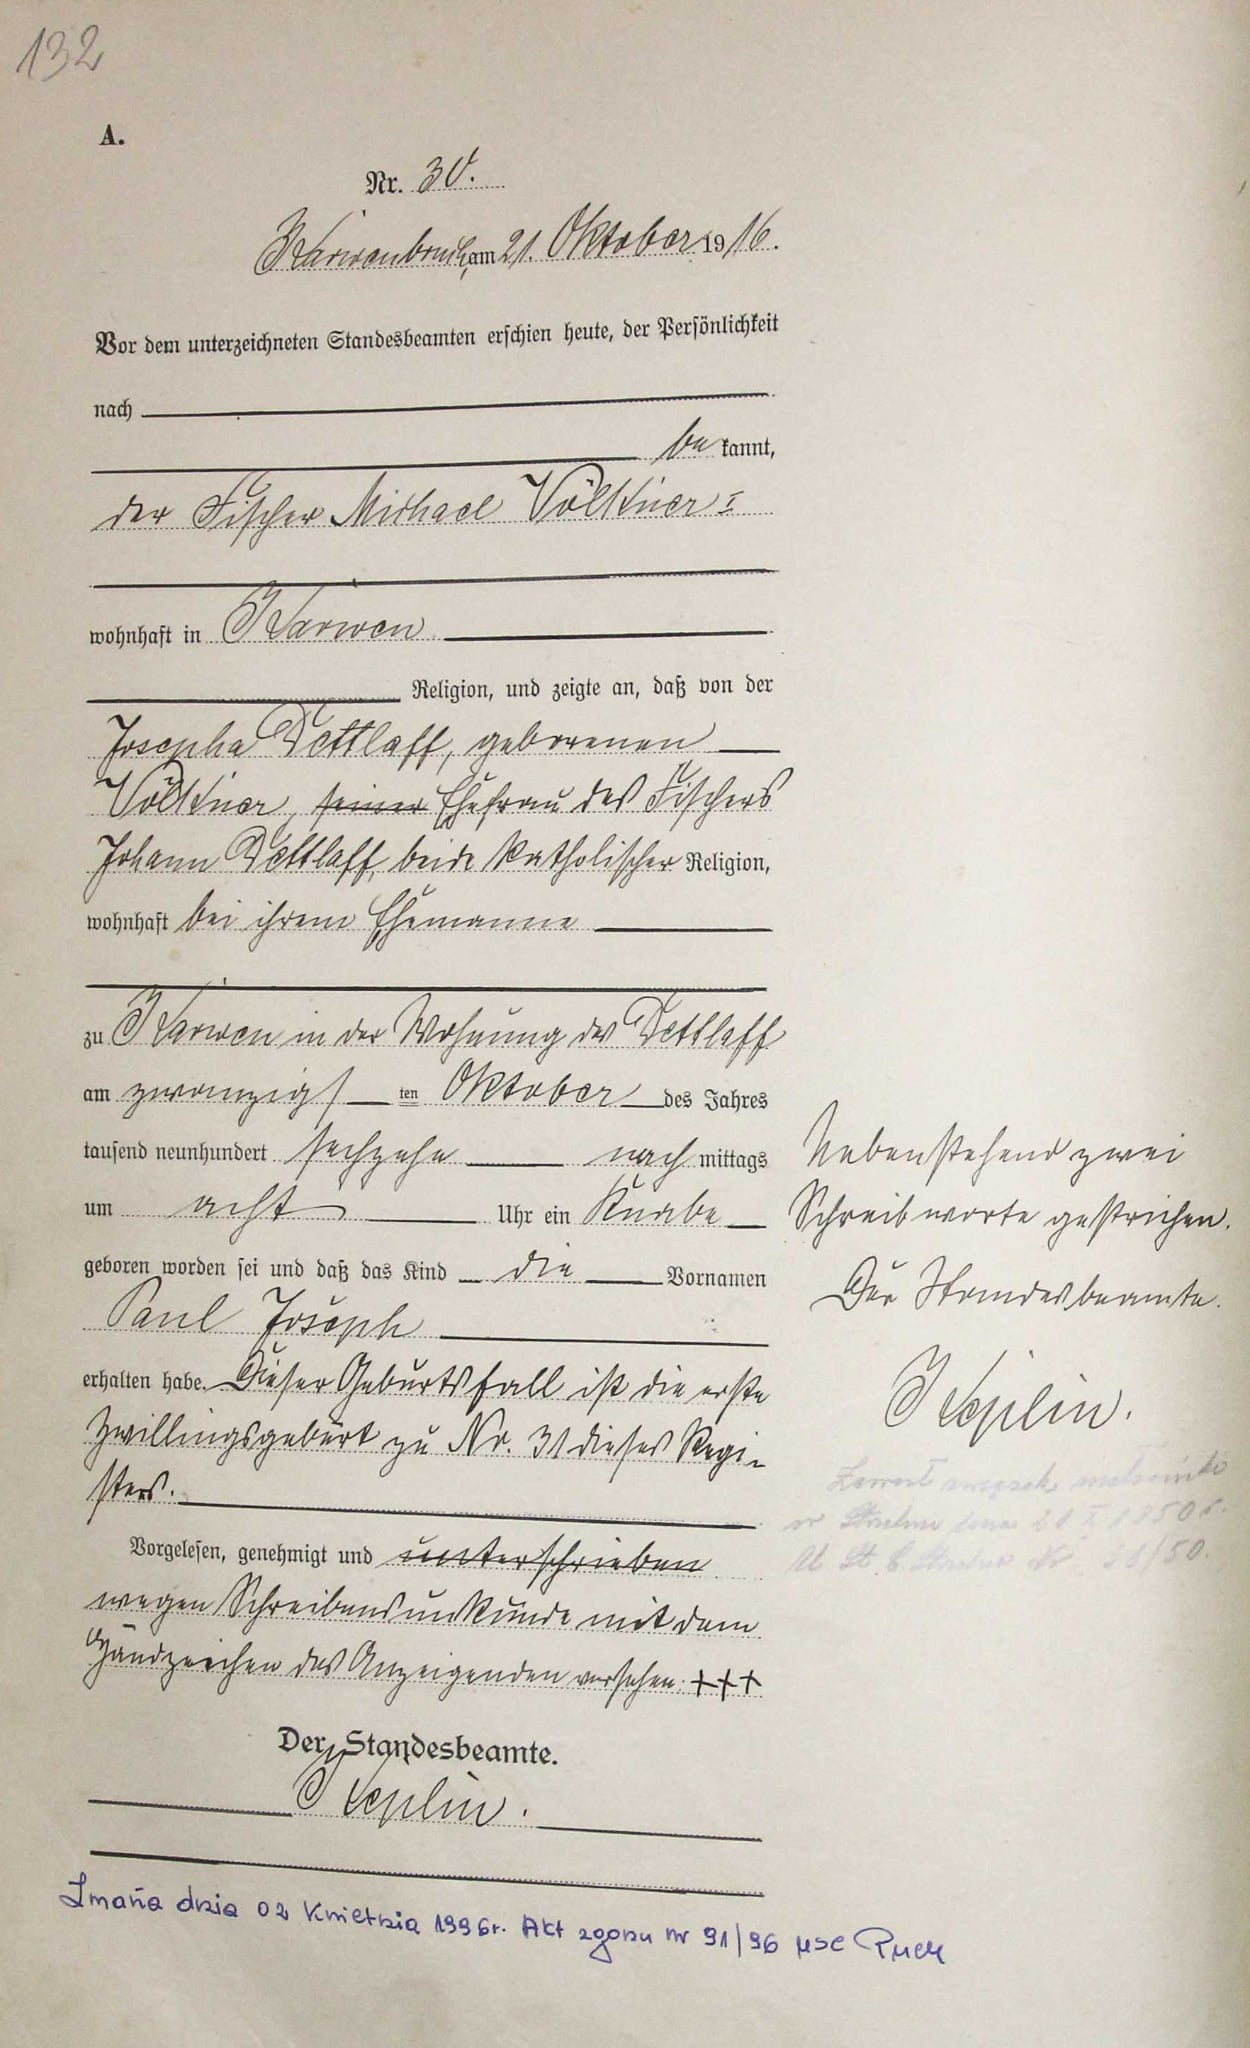 132
A.
Nr. 30.
Karwenbruch, am 21. Oktober 1916.
Vor dem unterzeichneten Standesbeamten erschien heute, der Persönlichkeit
nach
be kannt,
der Fischer Michael Völkner
wohnhaft in Karwen
Religion, und zeigte an, daß von der
Josepha Dettlaff, geborenen
Völkner, seiner Ehefrau des Fischers
Johann Dettlaff, beide katholischer Religion,
wohnhaft bei ihrem Ehemanne
zu Karwen in der Wohnung des Dettlaff
am zwanzigsten Oktober des Jahres
tausend neunhundert sechzehn nach mittags
um acht Uhr ein Knabe
geboren worden sei und daß das Kind die Vornamen
Paul Joseph
erhalten habe. Dieser Geburtsfall ist die erste
Zwillingsgeburt zu Nr. 31 dieses Regi-
sters.
Vorgelesen, genehmigt und unterschrieben
wegen Schreibensunkunde mit dem
Handzeichen des Anzeigenden versehen. +++
Der Standesbeamte.
Keplin.
Nebenstehend zwei
Schreibworte gestrichen.
Der Standesbeamte.
Keplin.
Zawarł związek małżeński
dnia 21 X 1950 r.
/50.
Zmarła dnia 02 kwietnia 1996r. Akt zgonu nr 91/96 USC Puck